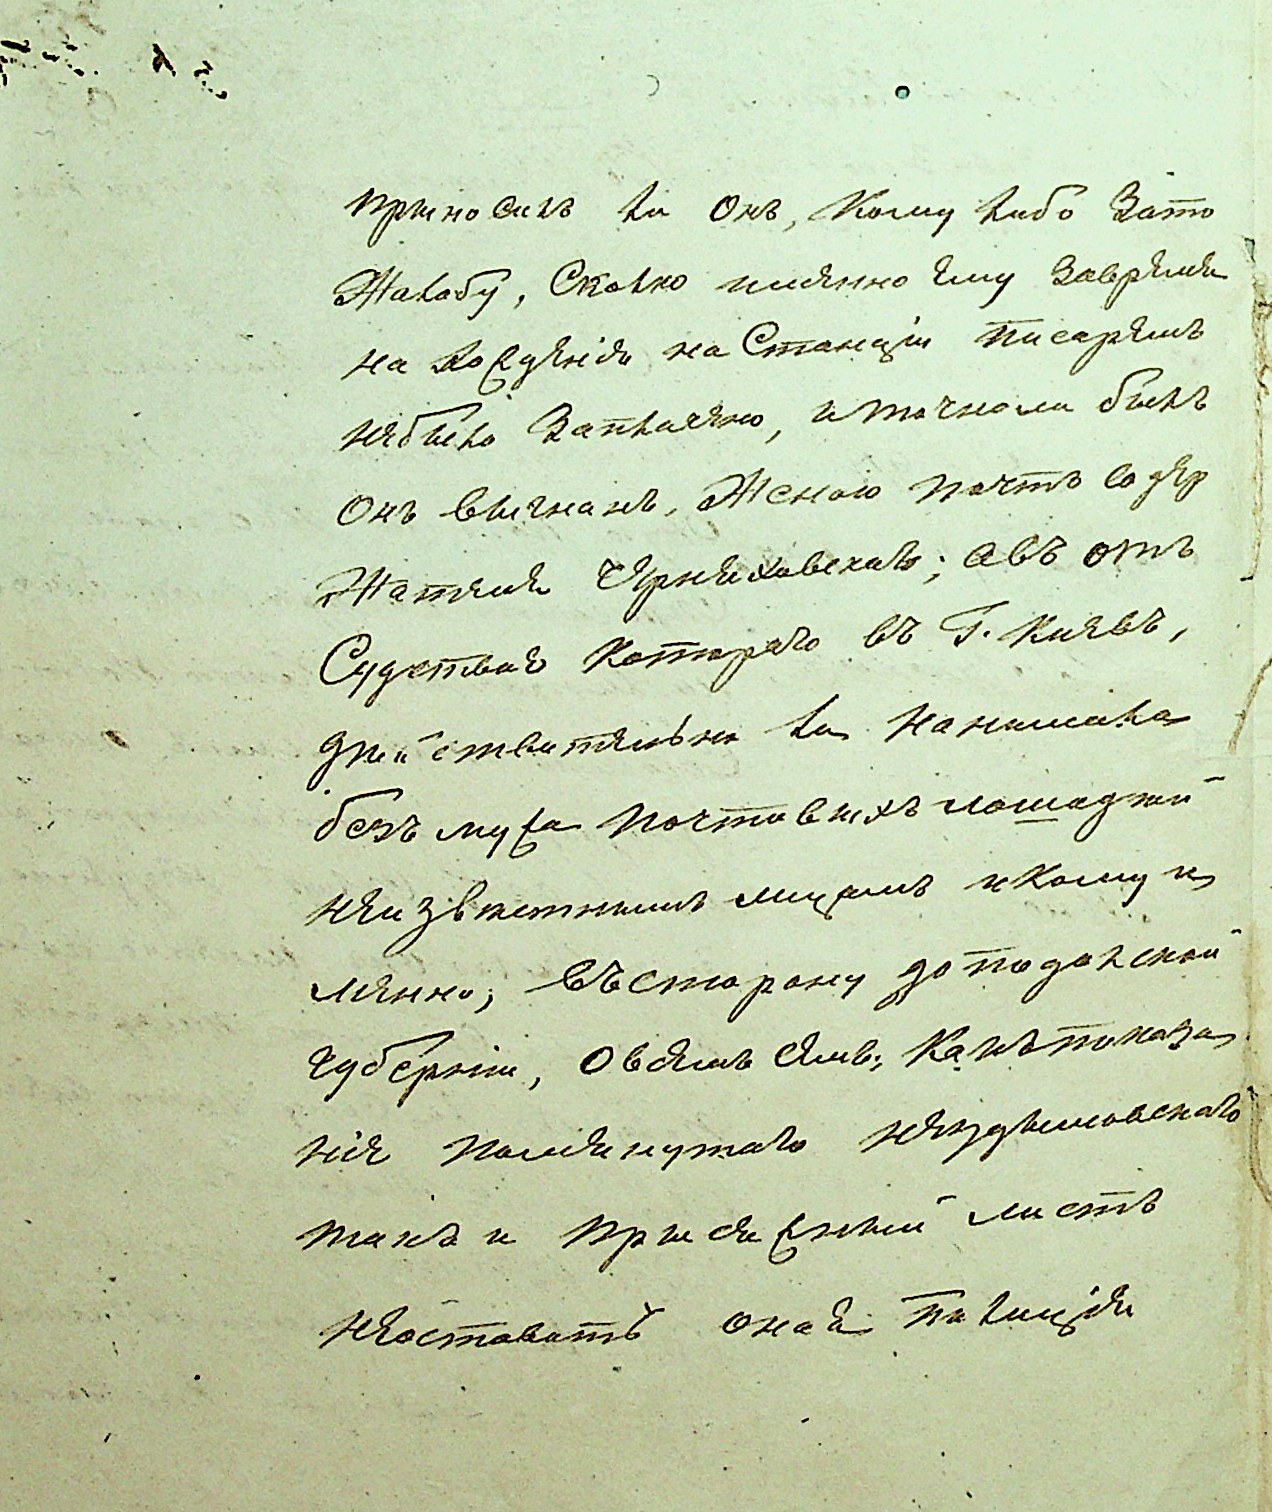 приносилъ ли онъ, кому либо зато
жалобу, сколко именно ему завремя
нахожденія на Станціи писаремъ
небыло заплачено, иточноли былъ
онъ выгнанъ, женою почтъ содер
жателя Черняховскаго; авъ отъ
Судствие котораго въ Г. Киевъ,
действительно ли нанимала
безъ мужа почтовыхъ лошадей
неизвестнымъ лицамъ икому и
мянно, въсторону доподолской
губерніи, овсемъ семъ; какъпоказа
ніе помянутаго
такъ и присяжный листъ
недоставитъ оная полиція